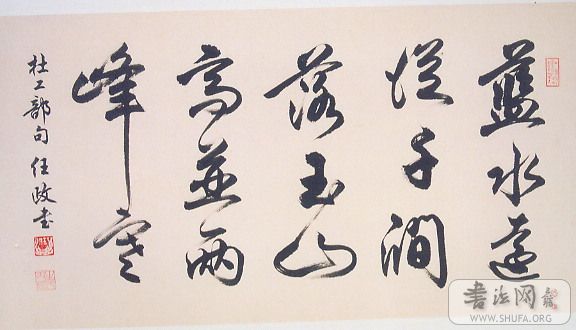 蓝水远
从千涧
落玉山
高並两
峰寒
杜工部句任政书
书法网
WWW.SHUFA.ORG